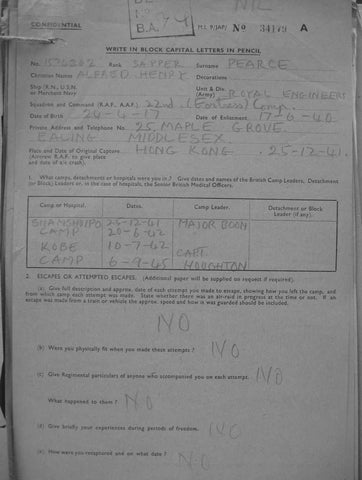 CONFIDENTIAL
B.A.
M.I. 9/JAP/ No 34179 A
WRITE IN BLOCK CAPITAL LETTERS IN PENCIL
No. Rank SAPPER Surname PEARCE
Christian Names ALFRED HENRY Decorations
Ship (R.N., U.S.N. or Merchant Navy Unit & Div. (Army) ROYAL ENGINEERS
Squadron and Command (R.A.F., A.A.F.) 22nd (Fortress) Comp.
Date of Birth 24-4-17 Date of Enlistment 17-6-40
Private Address and Telephone No. 25, MAPLE GROVE.
EALING MIDDLESEX.
Place and Date of Original Capture HONG KONG 25-12-41.
(Aircrew R.A.F. to give place
and date of a/c crash).
1. What camps, detachments or hospitals were you in? Give dates and names of the British Camp Leaders, Detachment
(or Block) Leaders or, in the case of hospitals, the Senior British Medical Officers.
Camp or Hospital. Dates. Camp Leader. Detachment or Block Leader (if any).
SHAMSHUIPO 25-12-41 MAJOR BOON
CAMP 20-6-42
KOBE 10-7-42 CAPT.
CAMP 6-9-45 HOUGHTON
2. ESCAPES OR ATTEMPTED ESCAPES. (Additional paper will be supplied on request if required).
(a) Give full description and approx. date of each attempt you made to escape, showing how you left the camp, and
from which camp each attempt was made. State whether there was an air-raid in progress at the time or not. If an
escape was made from a train or vehicle the approx. speed and how it was guarded should be included.
NO
(b) Were you physically fit when you made these attempts? NO
(c) Give Regimental particulars of anyone who accompanied you on each attempt. NO
What happened to them? NO
(d) Give briefly your experiences during periods of freedom. NO
(e) How were you recaptured and on what date? NO